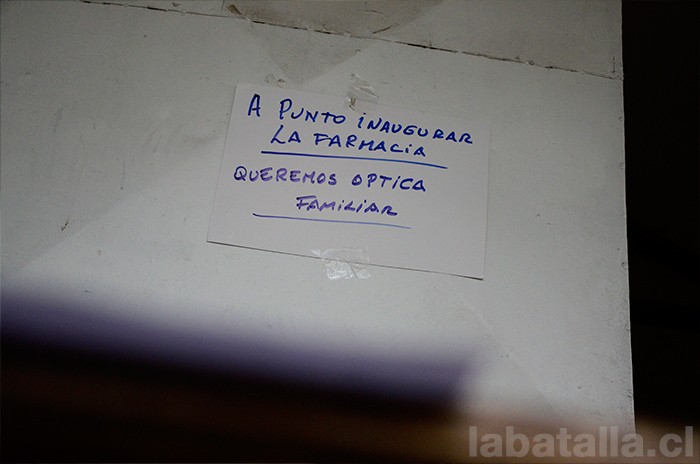 A PUNTO INAUGURAR
LA FARMACIA
QUEREMOS OPTICA
FAMILIAR
labatalla.cl